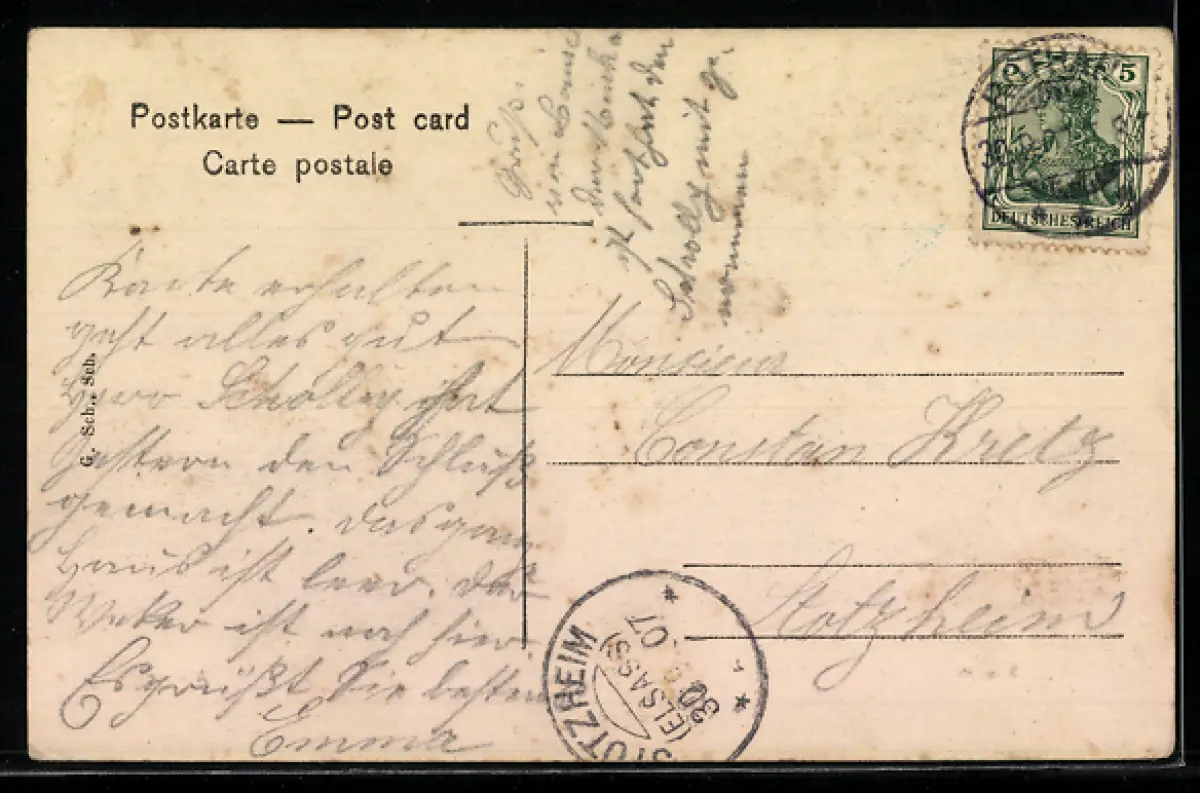 Postkarte — Post card
Carte postale
5
DEUTSCHES REICH
Grüße
von
ist fort
Scholly mit ge
nommen
Karte erhalten
geht alles gut
Herr Scholly hat
gestern den Schluß
gemacht. das ganz
Haus ist leer. der
Weber ist noch hier
Es grüßt Sie bestens
Emma
G. Sch., Seb.
Monsieur
Constan Kretz
Stotzheim
STOTZHEIM
(ELSASS)
30
07